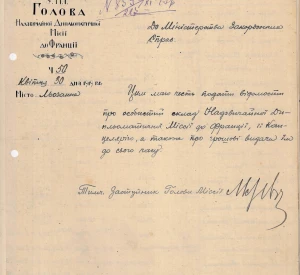 У.Н.Р.
Голова
Надзвичайної Дипломатичної
Місії
до Франції
Ч 50
Квітня 30 дня 1919 р.
Місто Льозанна
До Міністерства Закордонних
Справ.
Цим маю честь подати відомости
про особистий склад Надзвичайної Ди-
пльоматичної Місії до Франції, її Кан-
целярію, а також про грошові видачі
до сього часу.
Тимч. Заступник Голови Місії